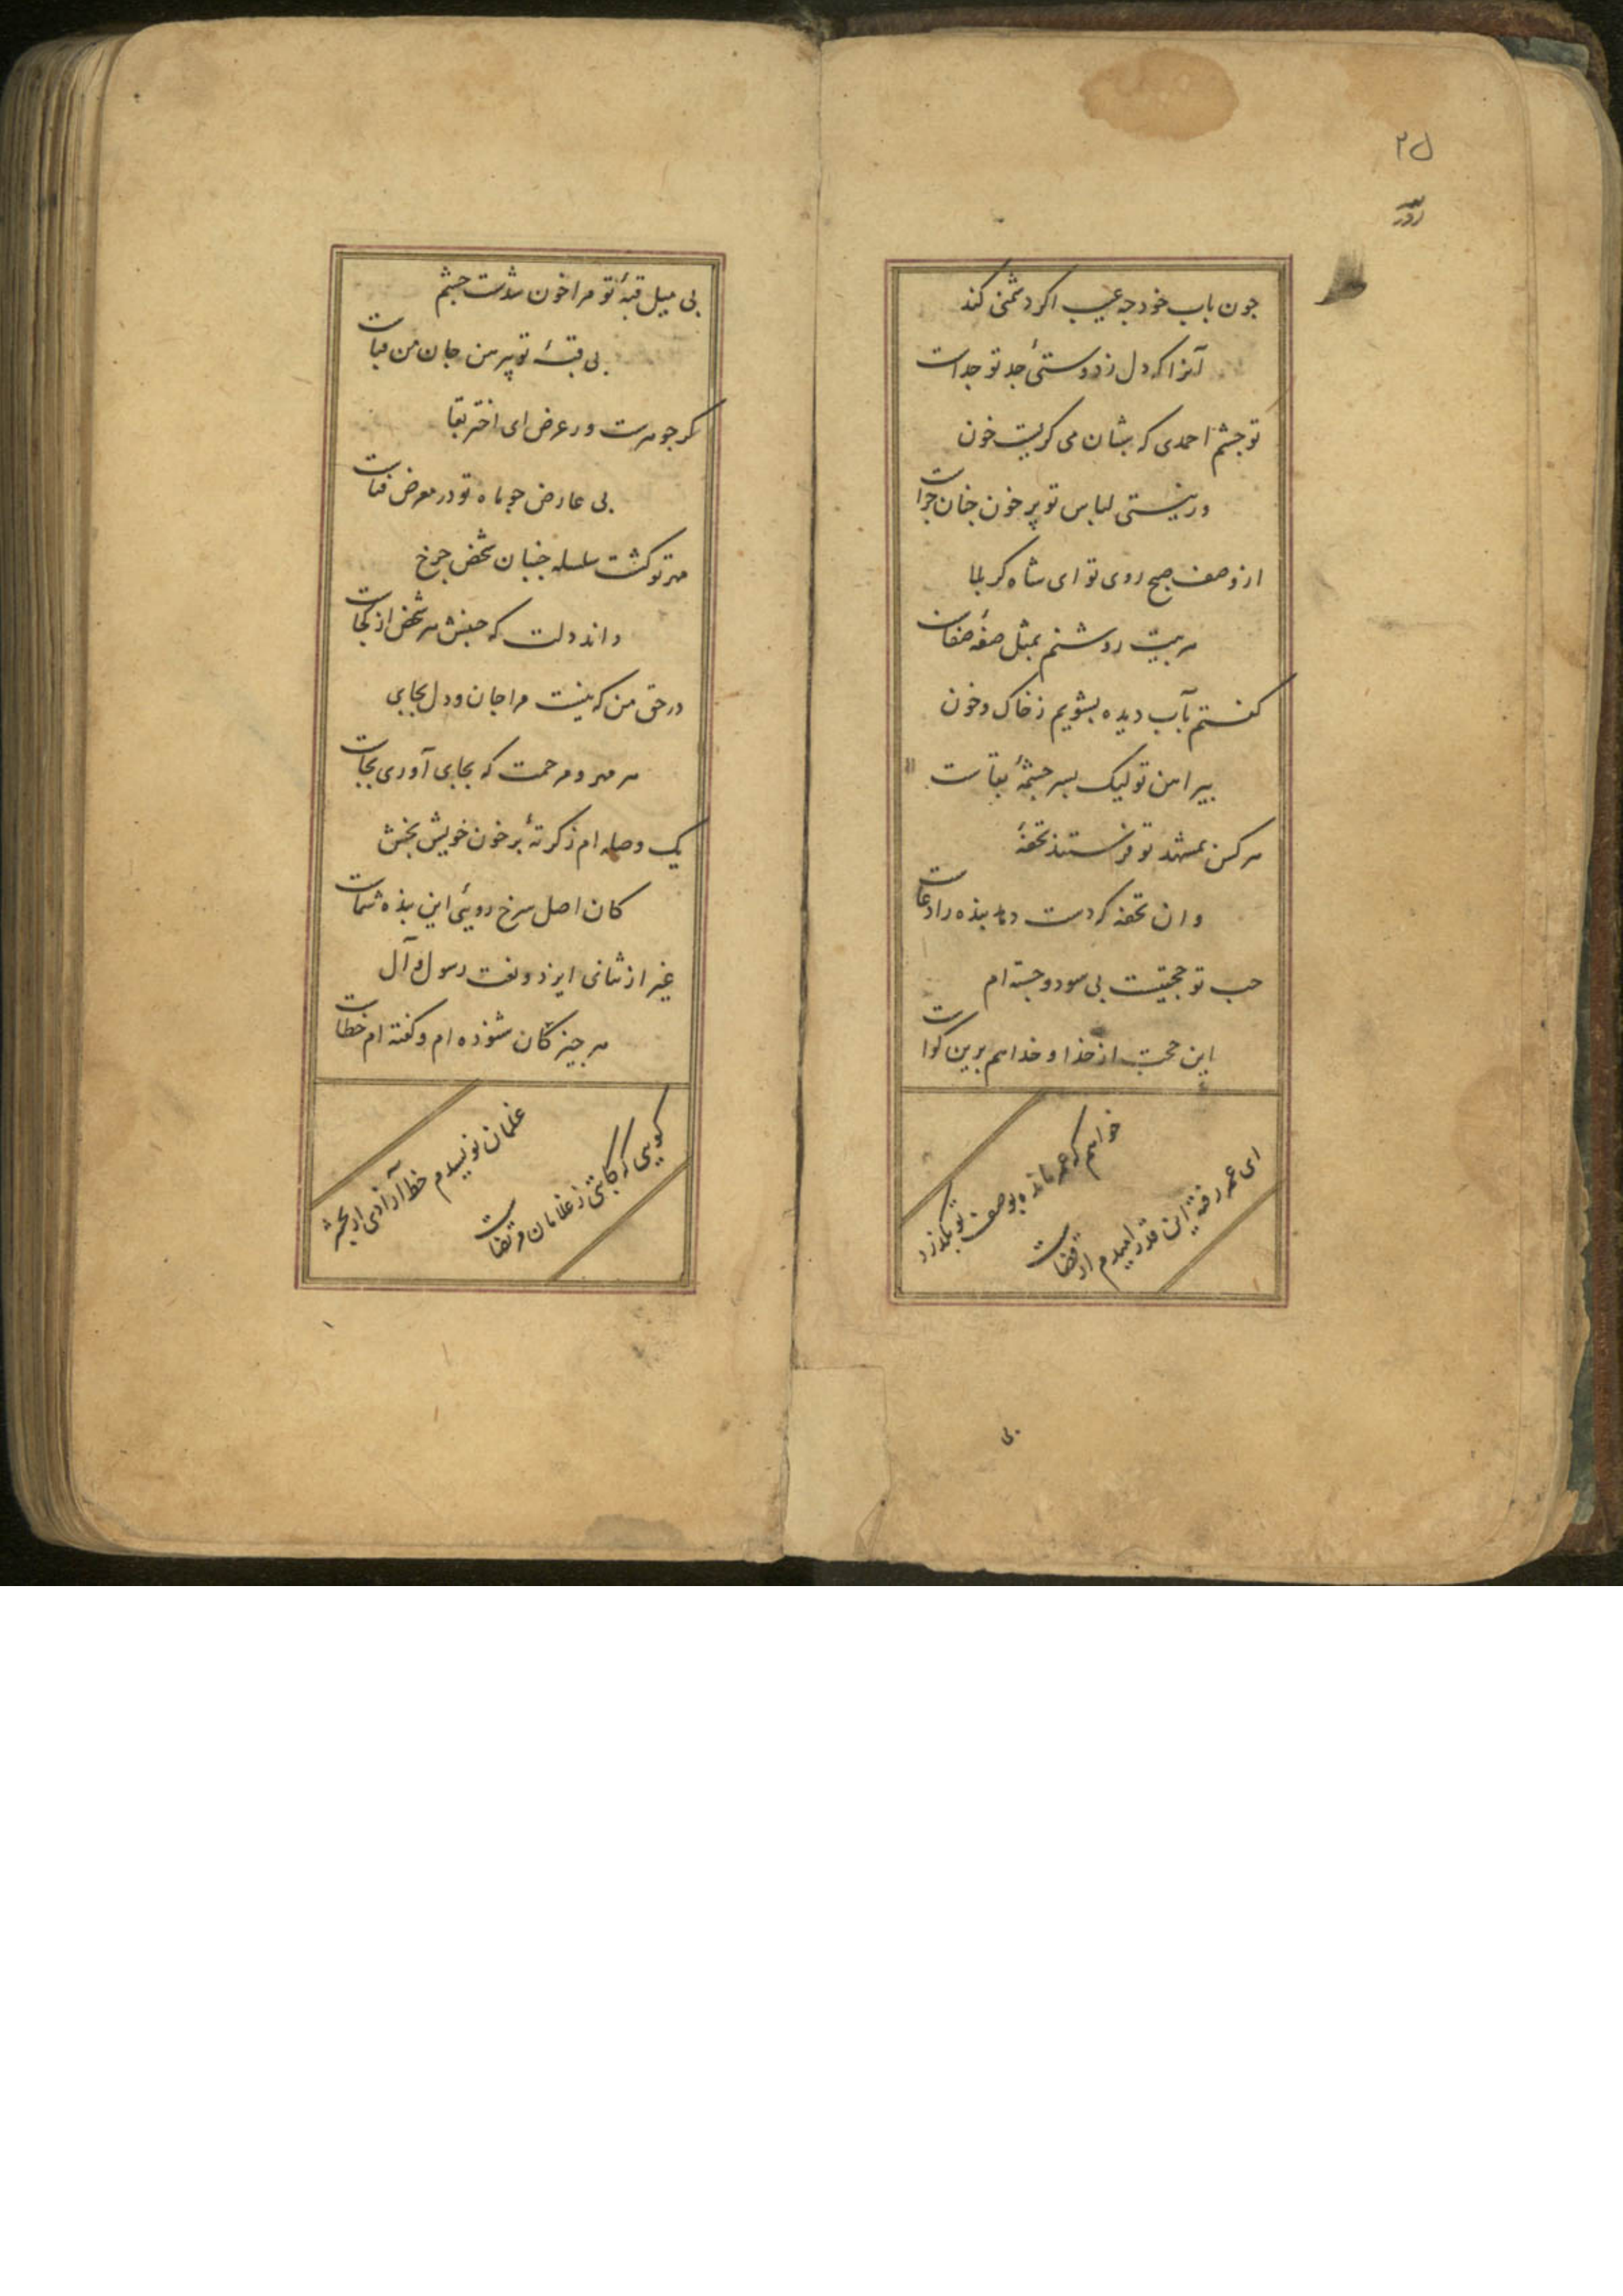 ۲۵
جون باب خود جه عیب اکر دشمنی کند
آنرا که دل ز دوستیٔ جد تو جداست
تو جشم احمدی که بشان می کریست خون
ور نیستی لباس تو پر خون جنان جراست
از وصف صبح روی تو ای شاه کربلا
هر بیت روشنم بمثل صفهٔ صفاست
کفتم بآب دیده بشویم ز خاک و خون
بیراهن تو لیک بسر جشمهٔ بقاست
هر کس بمشهد تو فرستند تحفهٔ
وان تحفه که دست دهد بنده را دعاست
حب تو حجتیست بی سود و جسته ام
این حجت از خدا و خدا هم برین کواست
خواهم که عمر مانده بوصف تو بکذرد
ای عمر رفته این قدر امیدم از قضاست
بی
بی میل قبهٔ تو مرا خون شدست جشم
بی قبهٔ تو پیرهن جان من قباست
کر جوهرست ور عرض ای اختر بقا
بی عارض جو ماه تو در معرض فناست
مهر تو کشت سلسله جنبان شخص جرخ
داند دلت که جنبش هر شخص از کجاست
در حق من که نیست مرا جان و دل بجای
هر مهر و مرحمت که بجای آوری بجاست
یک وصله ام ز کرتهٔ بر خون خویش بخش
کان اصل سرخ روییٔ این بنده شماست
غیر از ثنای ایزد و نعت رسول و آل
هر جیز کان شنوده ام و کفته ام خطاست
غلمان نویسدم خط آزادی از بحشر
کویی که کاتبی ز غلامان مرتضاست